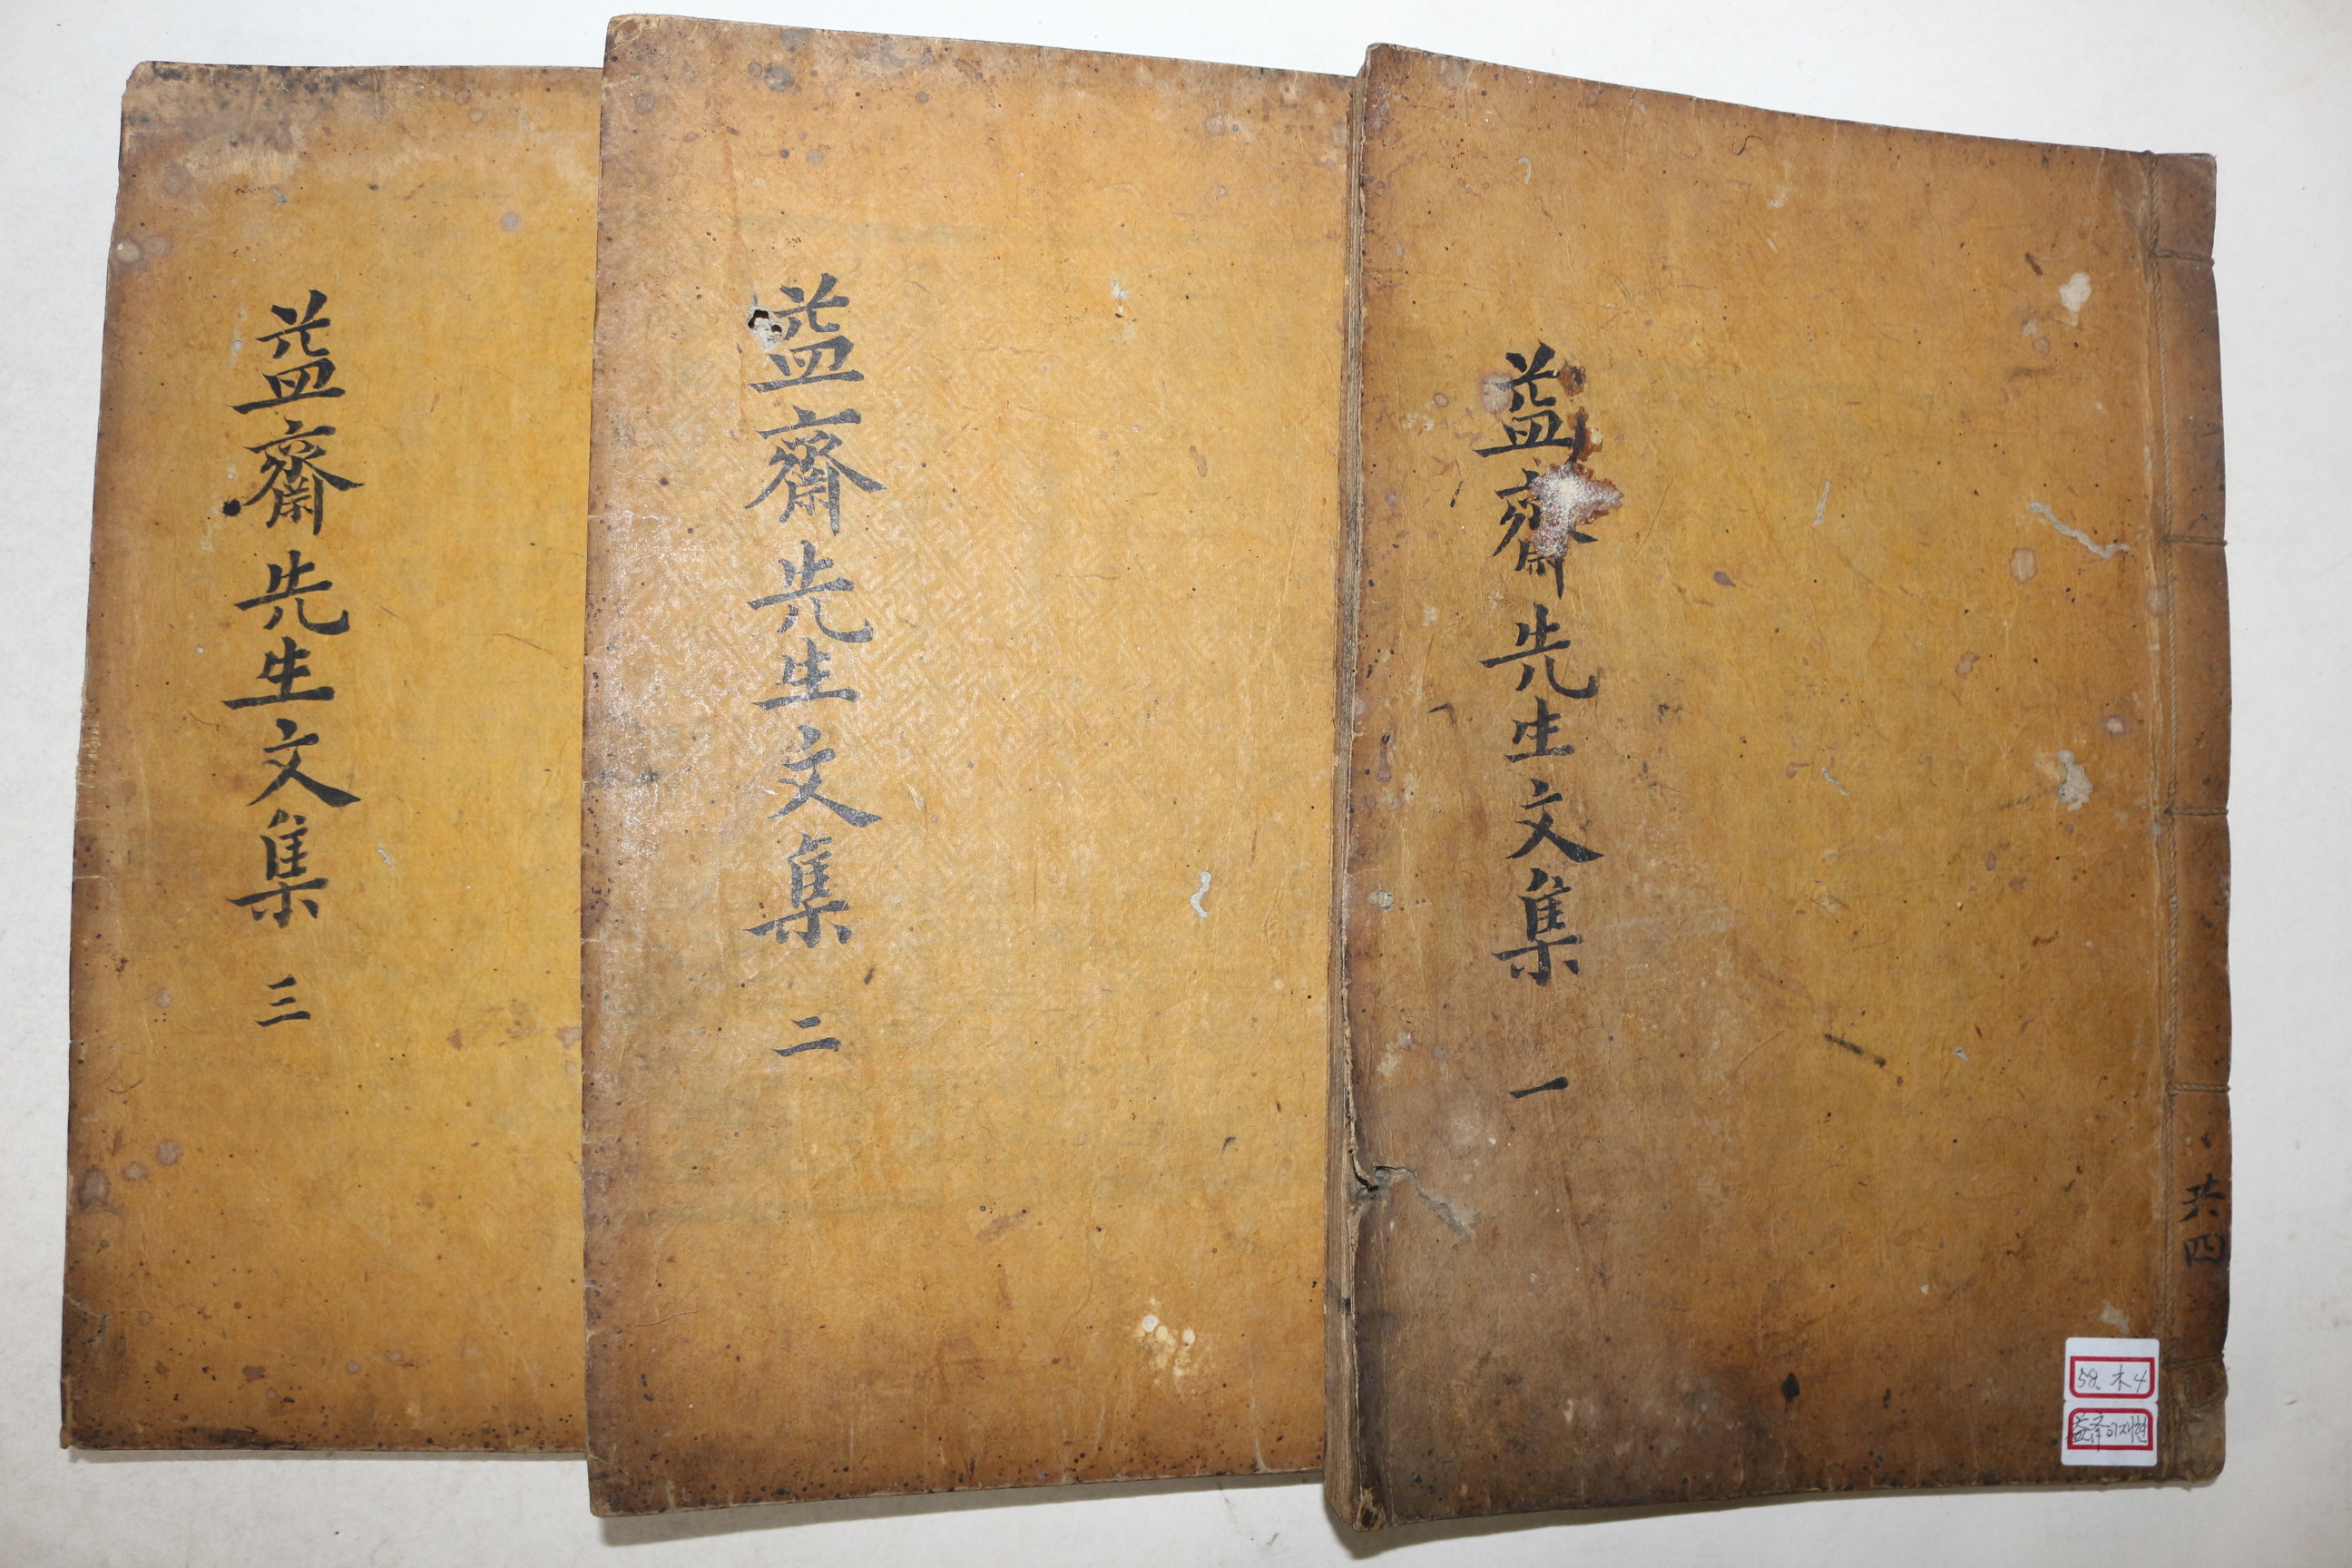 益齋先生文集 一
共四
58. 木4
益斎이재현
益齋先生文集 二
益齋先生文集 三